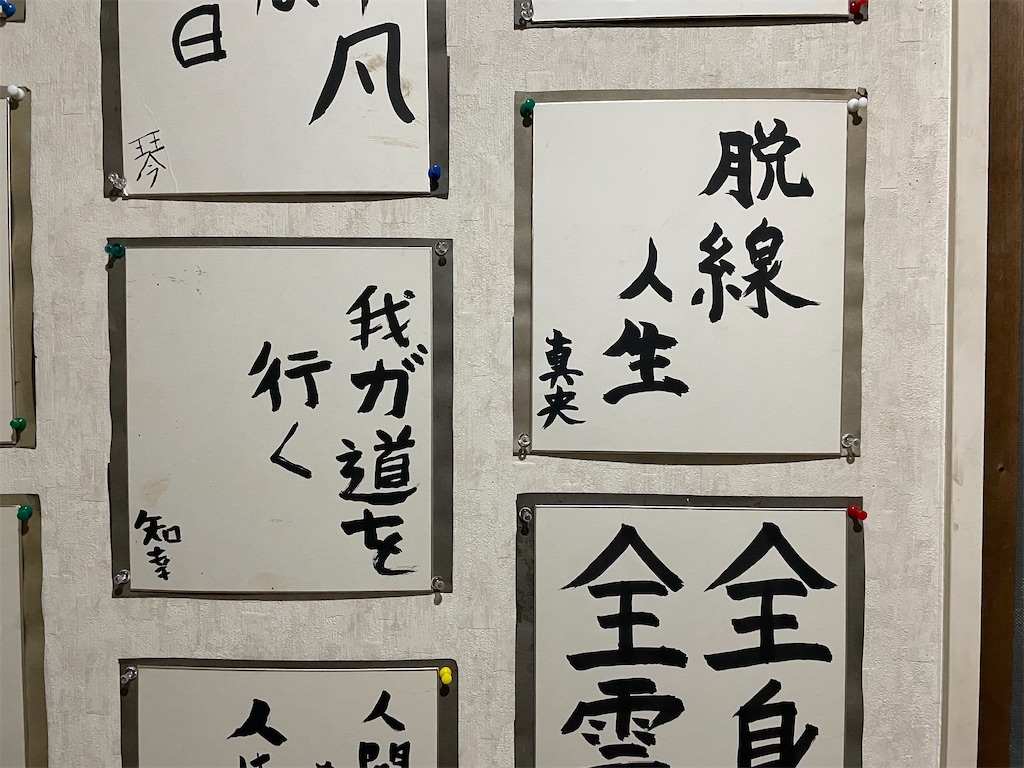 凡
日
琴
脱線
人生
真央
我が道を
行く
知幸
全身
全霊
人間
人